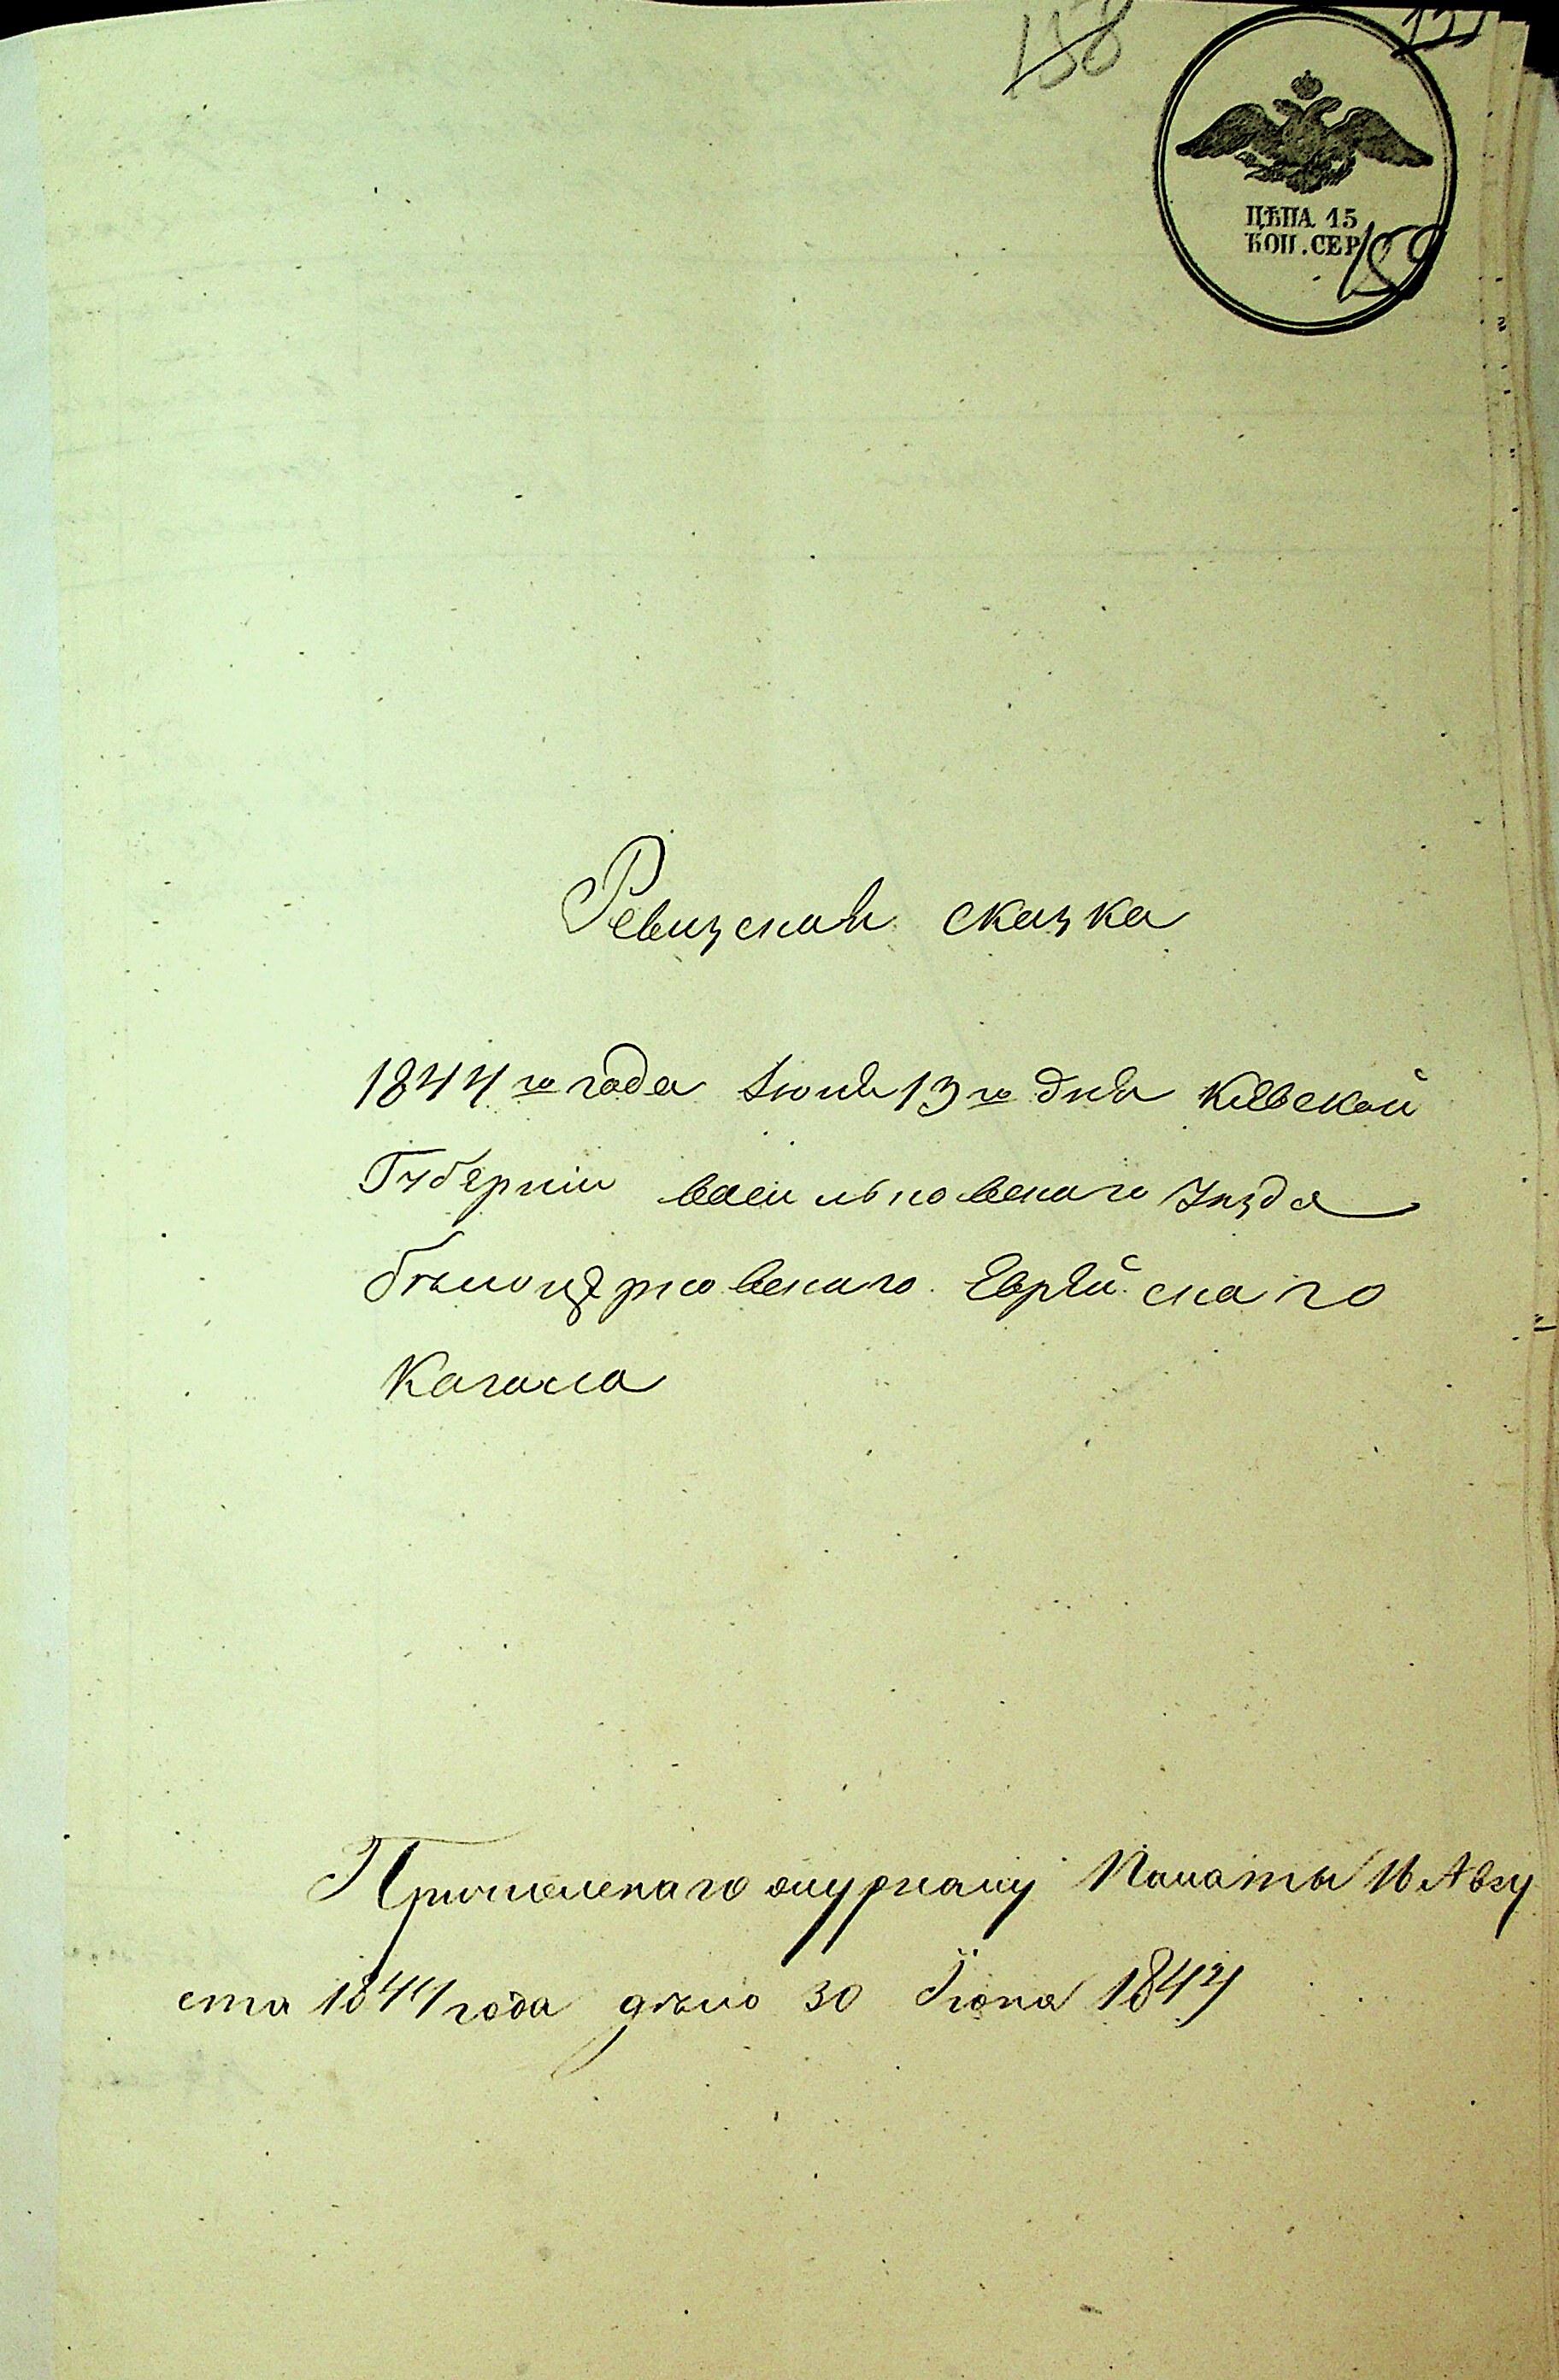 158
ЦѢНА 15
КОП. СЕР.
159
Ревизская сказка
1844го года Июня 13го дня Киевской
Губернии васильковского уезда
белоцерковского Еврейскаго
Кагала
журналу Палаты 16 Авгу
ста 1844 года дело 30 Июня 1844